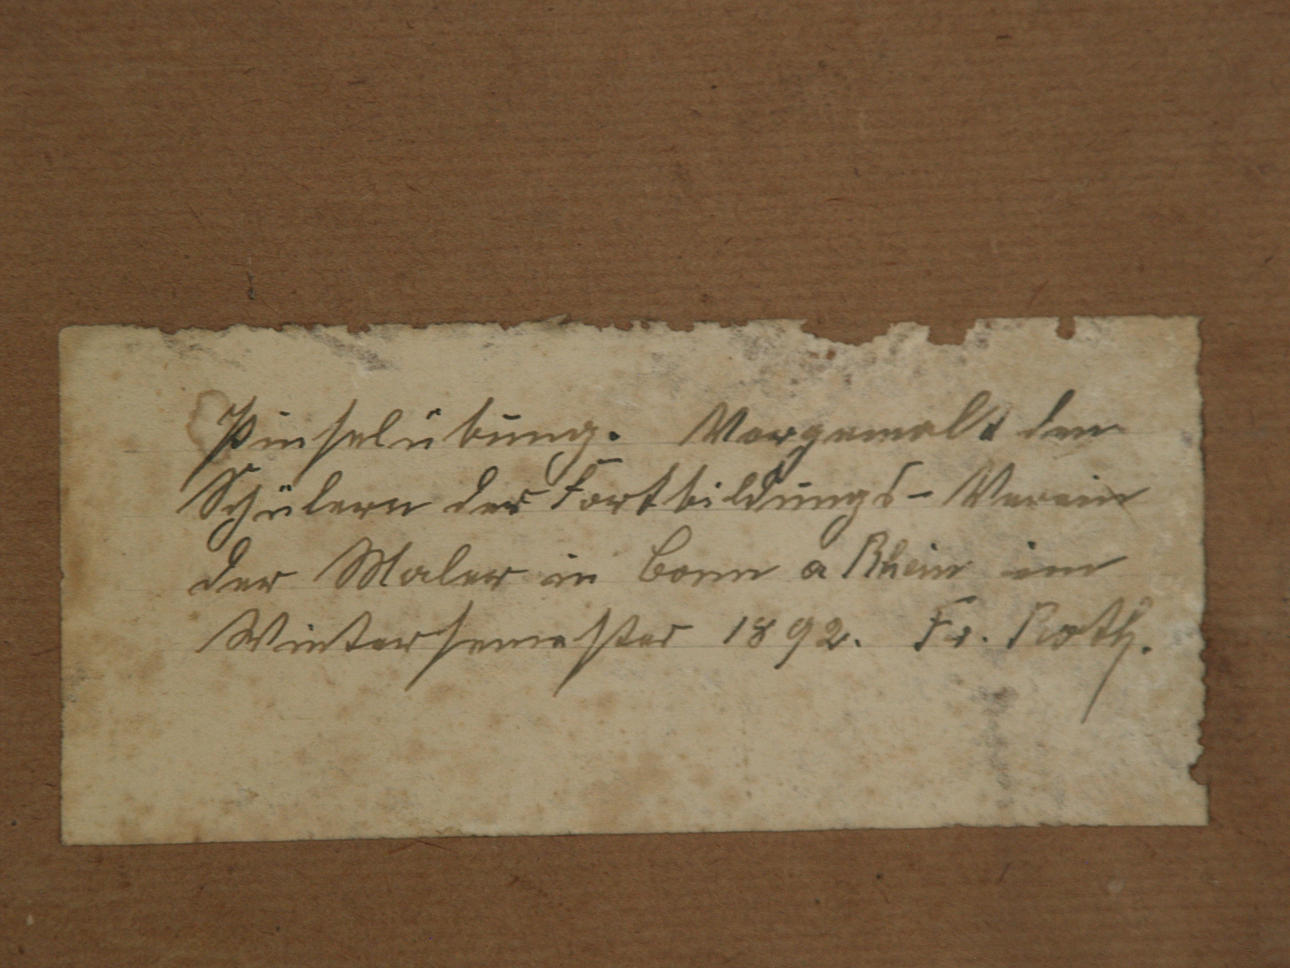 Pinselübung. Vorgemalt den
Schülern des Fortbildungs- Verein
der Maler in Bonn a Rhein im
Wintersemester 1892. Fr. Roth.